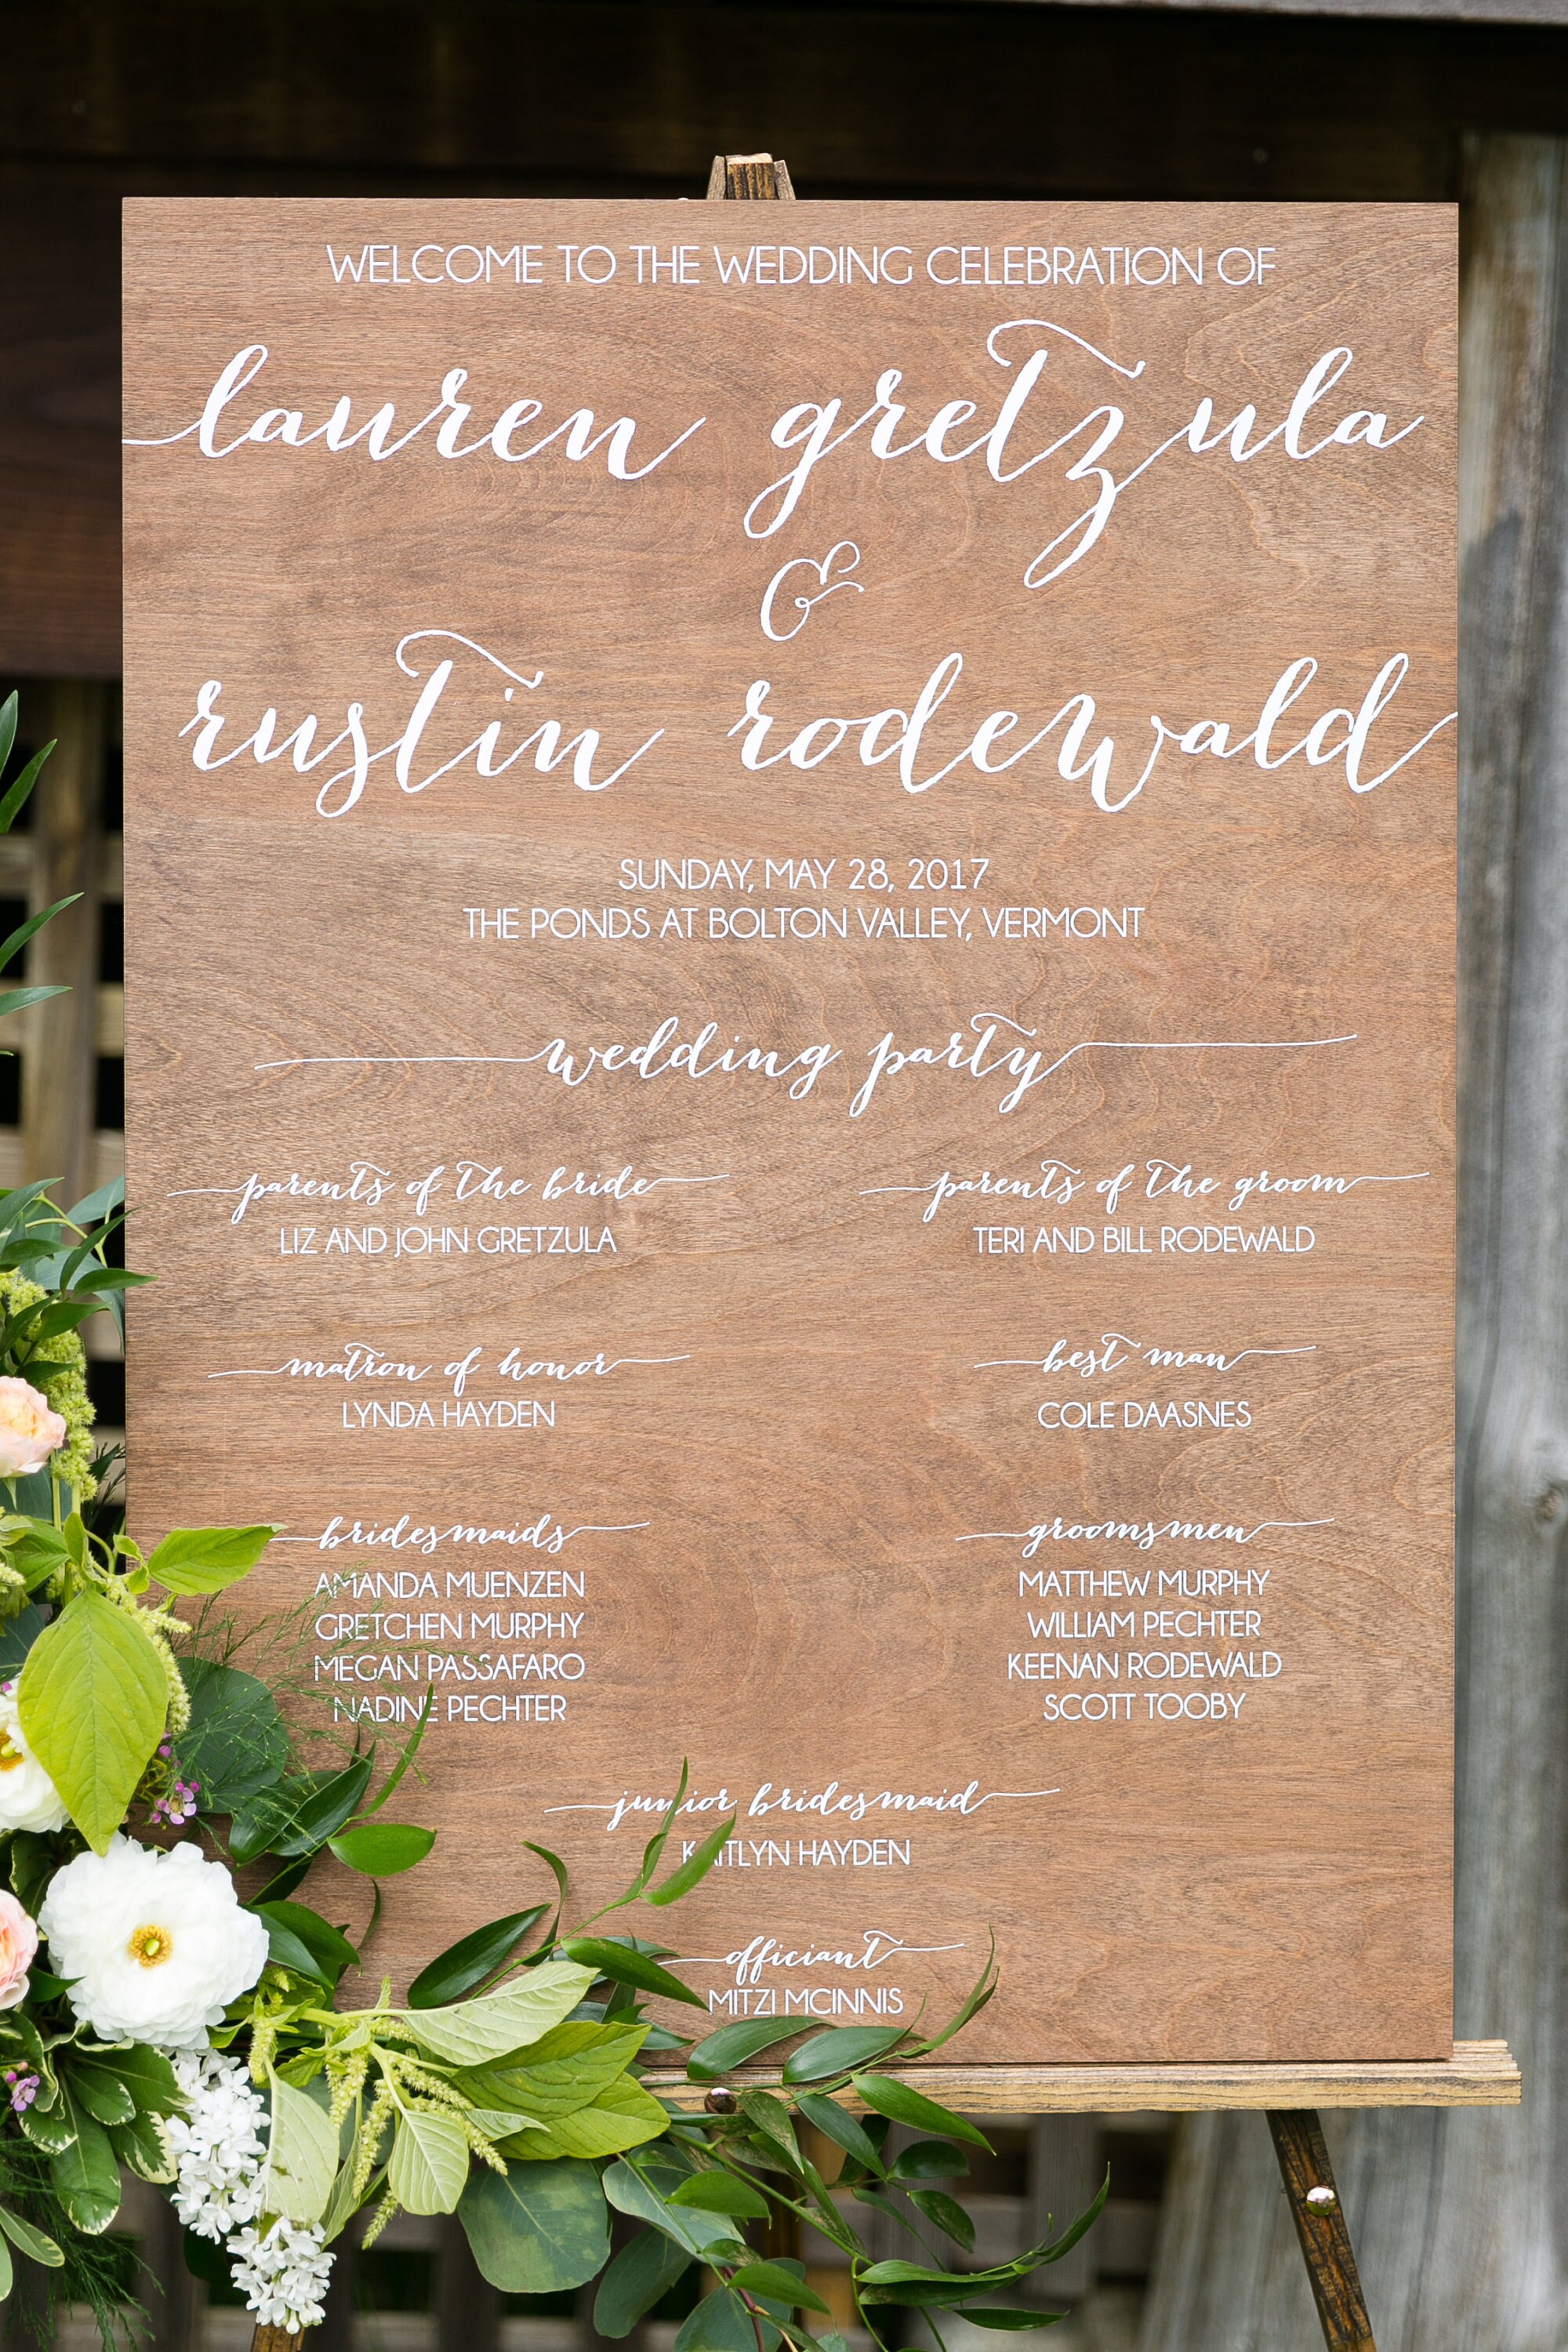 WELCOME TO THE WEDDING CELEBRATION OF
lauren gretzula
&
rustin rodewald
SUNDAY, MAY 28, 2017
THE PONDS AT BOLTON VALLEY, VERMONT
wedding party
parents of the bride
LIZ AND JOHN GRETZULA
parents of the groom
TERI AND BILL RODEWALD
matron of honor
LYNDA HAYDEN
best man
COLE DAASNES
bridesmaids
AMANDA MUENZEN
GRETCHEN MURPHY
MEGAN PASSAFARO
NADINE PECHTER
groomsmen
MATTHEW MURPHY
WILLIAM PECHTER
KEENAN RODEWALD
SCOTT TOOBY
junior bridesmaid
KAITLYN HAYDEN
officiant
MITZI MCINNIS